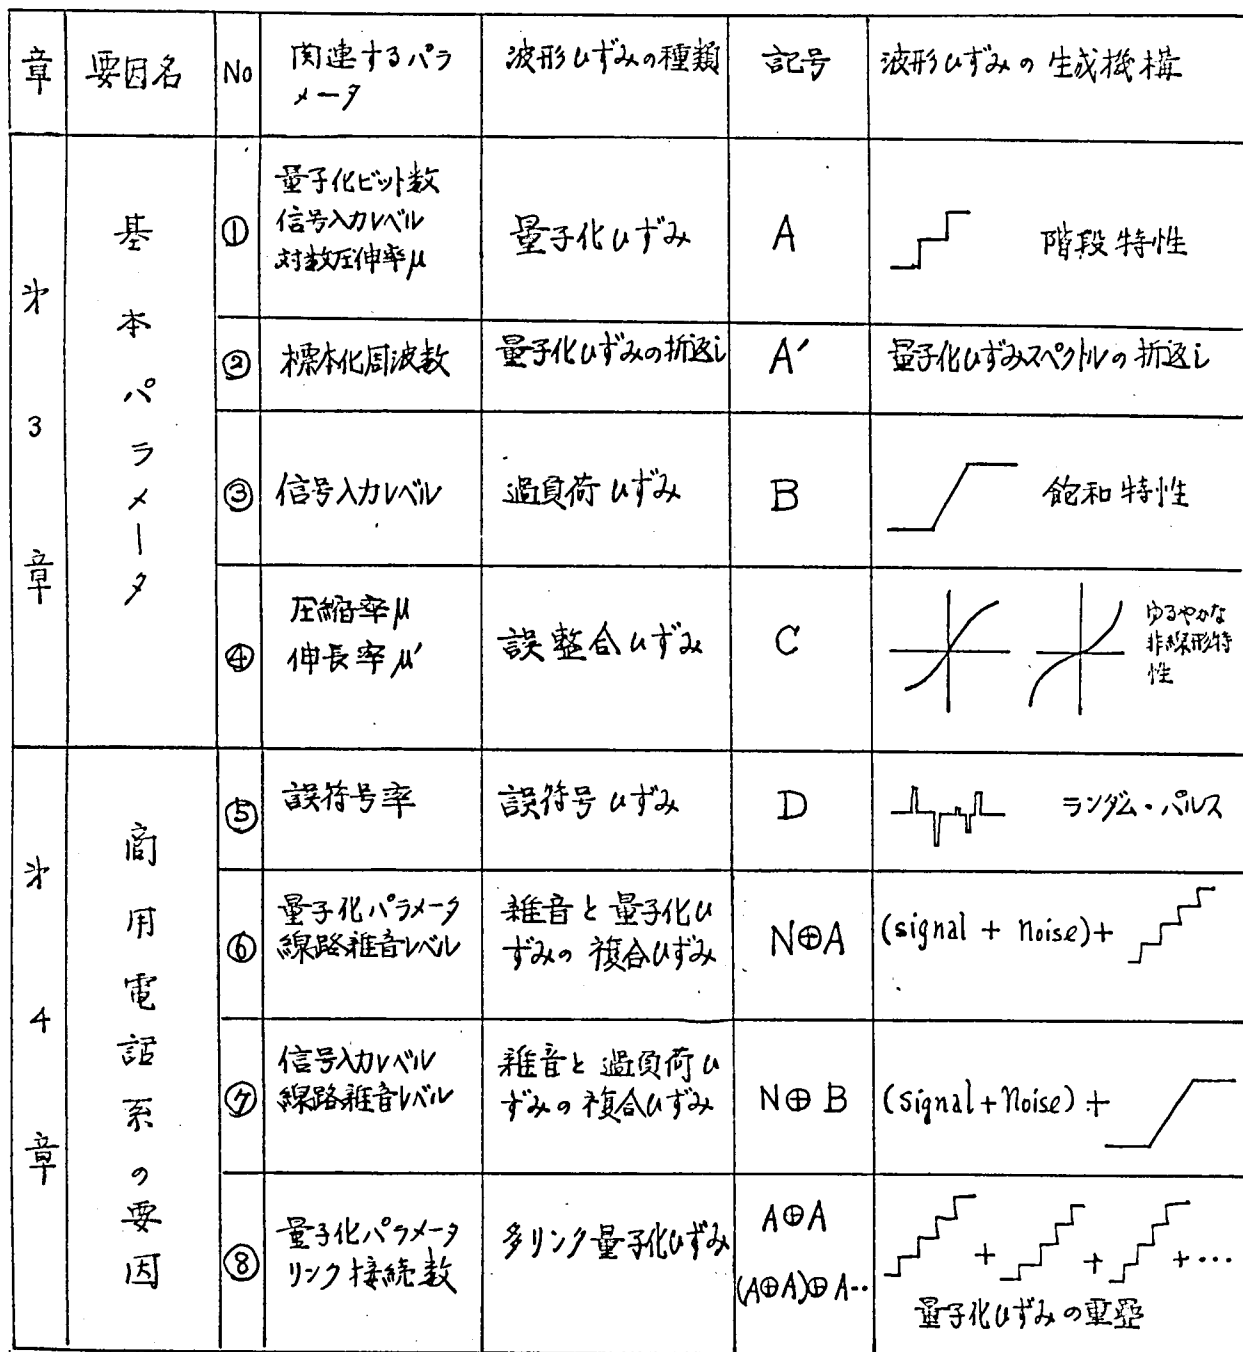 章 要因名 No 関連するパラ 波形ひずみの種類 記号 波形ひずみの生成機構
メータ
才3章
基本パラメータ
① 量子化ビット数
信号入力レベル
対数圧伸率μ
量子化ひずみ A 階段特性
② 標本化周波数 量子化ひずみの折返し A′ 量子化ひずみスペクトルの折返し
③ 信号入力レベル 過負荷ひずみ B 飽和特性
④ 圧縮率μ
伸長率μ′
誤整合ひずみ C ゆるやかな
非線形特
性
才4章
商用電話系の要因
⑤ 誤符号率 誤符号ひずみ D ランダム・パルス
⑥ 量子化パラメータ
線路雑音レベル
雑音と量子化ひ
ずみの複合ひずみ
N⊕A (signal + noise)+
⑦ 信号入力レベル
線路雑音レベル
雑音と過負荷ひ
ずみの複合ひずみ
N⊕B (signal+noise)+
⑧ 量子化パラメータ
リンク接続数
多リンク量子化ひずみ
A⊕A
(A⊕A)⊕A‥
+ + +…
量子化ひずみの重畳